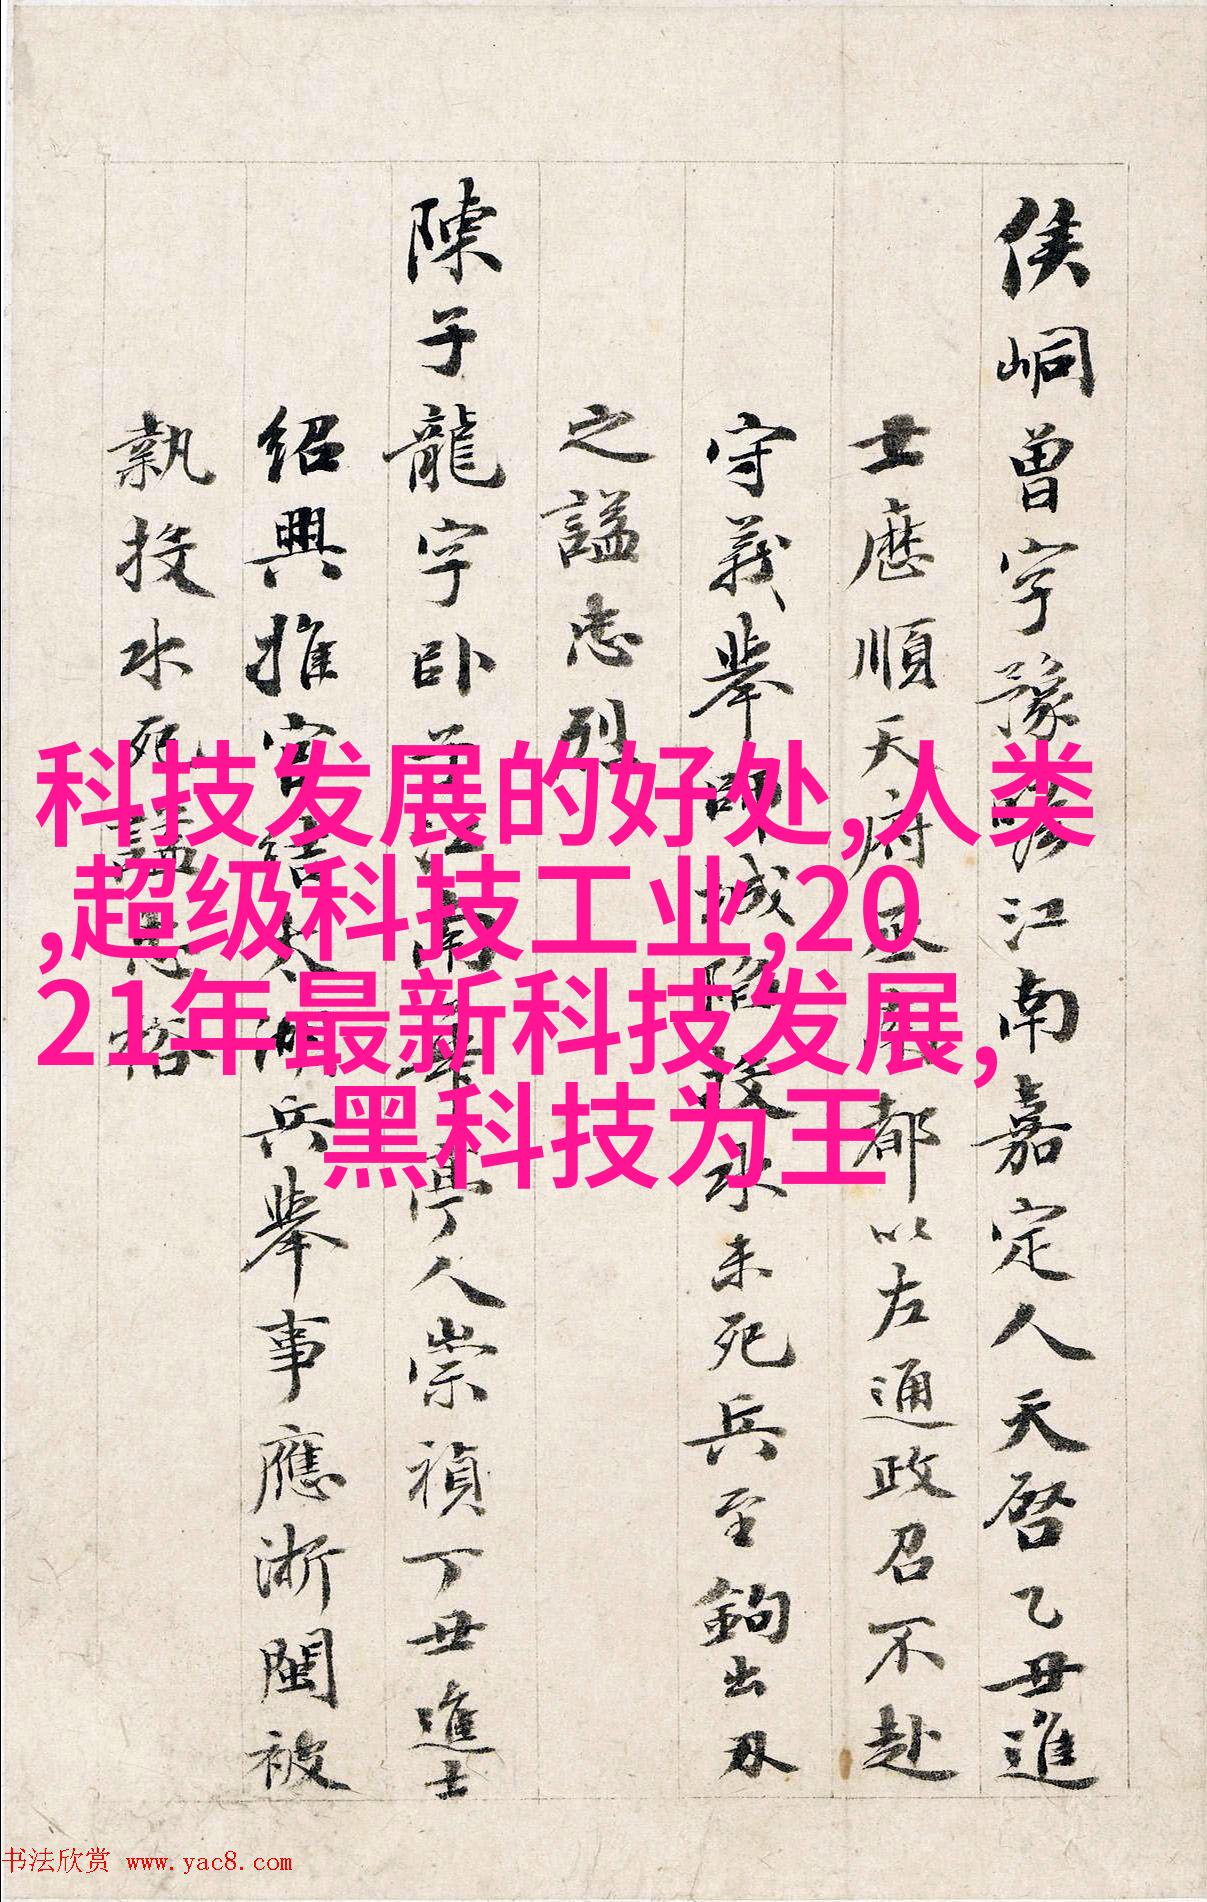 侯峒曾字豫瞻江南嘉定人天啓乙丑進
士歷順天府丞南都以左通政召不赴
守義舉師城陷投水未死兵至鉤出刃
之謚忠烈
陳子龍字卧子江南華亭人崇禎丁丑進士
紹興推官結太湖兵舉事應浙閩被
執投水死謚忠裕
科技发展的好处,人类
,超级科技工业,20
21年最新科技发展,
黑科技为王
书法欣赏 www.yac8.com